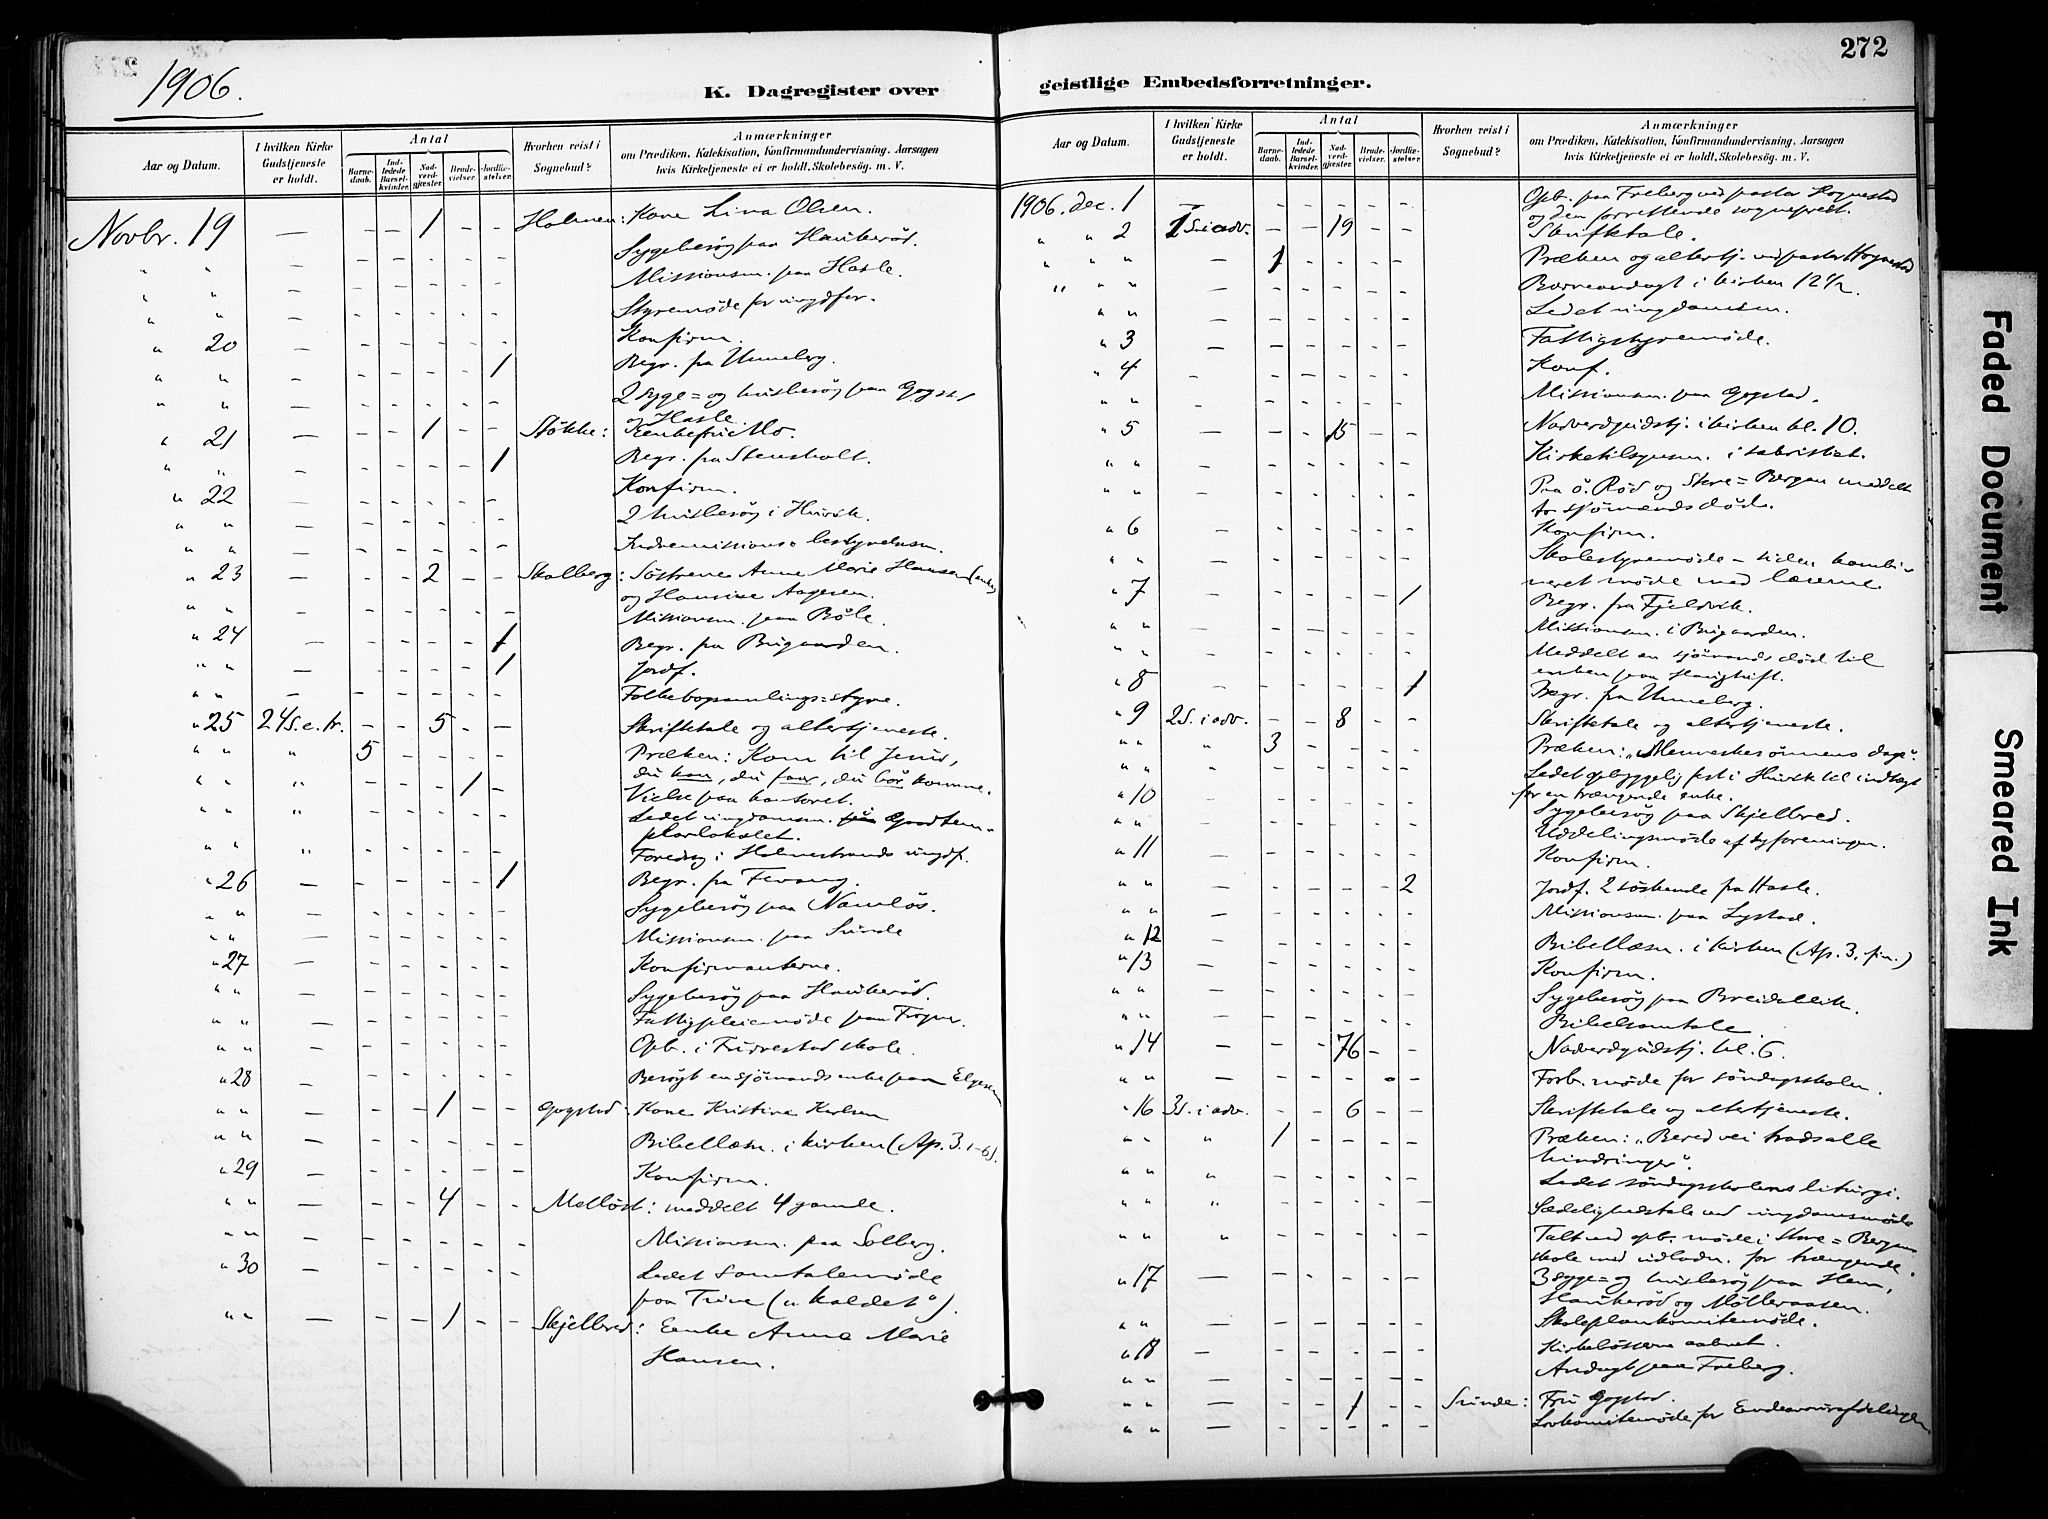 272
1906.
K. Dagregister over geistlige Embedsforretninger.
Aar og Datum.
I hvilken Kirke Gudstjeneste er holdt.
Antal
Barnedaab.
Indledede Barselkvinder.
Nadverdgjester.
Brudevielser.
Jordfæstelser.
Hvorhen reist i Sognebud?
Anmærkninger
om Prædiken, Katekisation, Konfirmandundervisning, Aarsagen
hvis Kirketjeneste ei er holdt. Skolebesøg. m. V.
Novbr. 19 — – – 1 – – Holmen: Kone Lina Olsen.
Sygebesøg paa Haukerød.
" " — Missionsm. paa Hasle.
" " — Styremøde for ungdfor.
" 20 — Konfirm.
" " — 1 Begr. fra Unneberg.
" " — 2 syge= og husbesøg paa Gogst.
og Hasle.
" 21 — 1 Støkke: Enkefru Mo.
" " — 1 Begr. fra Stensholt.
" 22 — Konfirm.
" " — 2 husbesøg i Hurvk.
" " — Indremissions=bestyrelsesm.
" 23 — 2 Skolberg: Søstrene Anne Marie Hansen (enke)
og Hansine Aagesen.
" " — Missionsm. paa Bøle.
" 24 — 1 Begr. fra Brygaarden.
" " — 1 Jordf.
" " — Folkebogsamlings=styre.
" 25 24 S. e. tr. – – 5 – – Skriftetale og altertjeneste.
" " " 5 Præken: Kom til Jesus,
du kan, du faar, du bør komme.
" " " 1 Vielse paa kontoret.
" " " Ledet ungdomsm. Goodtem-
plarlokalet.
" " " Foredrag i Holmestrands ungdf.
" 26 — 1 Begr. fra Fevang.
" " — Sygebesøg paa Namløs.
" " — Missionsm. paa Sunde
" 27 — Konfirmanterne.
" " — Sygebesøg paa Haukerød.
" " — Fattigpleiemøde paa Fogner.
" " — Opb. i Furustad skole.
" 28 — Besøgt en sjømandsenke paa Elgesem
" " — 1 Gogstad: Kone Kristine Karlsen
" " — Bibellæsn. i kirken (Ap. 3. 1-6).
" 29 — Konfirm.
" " — 4 Mølløst: meddelt 4 gamle.
" " — Missionsm. paa Solberg.
" 30 — Ledet samtalemøde
paa Trine („kaldet").
" " — 1 Skjelbred: Enke Anne Marie
Hansen.
K. Dagregister over geistlige Embedsforretninger.
Aar og Datum.
I hvilken Kirke Gudstjeneste er holdt.
Antal
Barnedaab.
Indledede Barselkvinder.
Nadverdgjester.
Brudevielser.
Jordfæstelser.
Hvorhen reist i Sognebud?
Anmærkninger
om Prædiken, Katekisation, Konfirmandundervisning, Aarsagen
hvis Kirketjeneste ei er holdt. Skolebesøg. m. V.
1906. dec. 1 — Opb. paa Freberg ved pastor Hognestad
og den forrettende sogneprest.
" " 2 1 S. i adv. – – 19 – – Skriftetale.
" " " — 1 Præken og altertj. ved pastor Hognestad
" " " — Barneandagt i kirken 12½.
" " — Ledet ungdomsm.
" 3 — Fattigstyremøde.
" 4 – Konf.
" " — Missionsm. paa Gogstad.
" 5 — 15 Nadverdgudstj. i kirken kl. 10.
" " — Kirketilsynsm. i sakristiet.
" " — Paa Ø. Rød og Store=Bergan meddelt
to sjømandsdøde.
" 6 — Konfirm.
" " — Skolestyremøde – siden kombi-
neret møde med lærerne.
" 7 — 1 Begr. fra Fjeldvik.
" " — Missionsm. i Brygaarden.
" " — Meddelt en sjømands død til
enken paa Haugtuft.
" 8 — 1 Begr. fra Unneberg.
" 9 2 S. i adv. – – 8 – – Skriftetale og altertjeneste.
" " " 3 Præken: „Menneskesønnens dage".
" " " Ledet opbyggelig fest i Hurvk til indtægt
for en trængende enke.
" 10 – Sygebesøg paa Skjelbred.
" " – Uddelingsmøde af syforeningen.
" 11 – Konfirm.
" " — 2 Jordf. 2 søskende fra Hasle.
" " — Missionsm. paa Lystad.
" 12 – Bibellæsn. i kirken (Ap. 3. fin.)
" 13 — Konfirm.
" " — Sygebesøg paa Breidablik.
" " — Bibelsamtale.
" 14 — 76 Nadverdgudstj. kl. 6.
" " — Forb. møde for søndagsskolen.
" 16 3 S. i adv. – – 6 – – Skriftetale og altertjeneste.
" " " 1 Præken: „Bered vei trods alle
hindringer".
" " " Ledet søndagsskolens liturgi.
" " " Sædelighedstale ved ungdomsmøde
" " " Talt ved opb. møde i Store=Bergan
skole med udlodn. for trængende.
" 17 — 3 syge= og husbesøg paa Hem,
Haukerød og Mølleraasen.
" " — Skoleplankomitemøde.
" 18 — Kirkebøsserne aabnet.
" " — Andagt paa Freberg.
" " — 1 Sunde: Fru Gogstad.
" " — Lovkomitemøde for Endeavourafdelingen
Faded Document
Smeared Ink